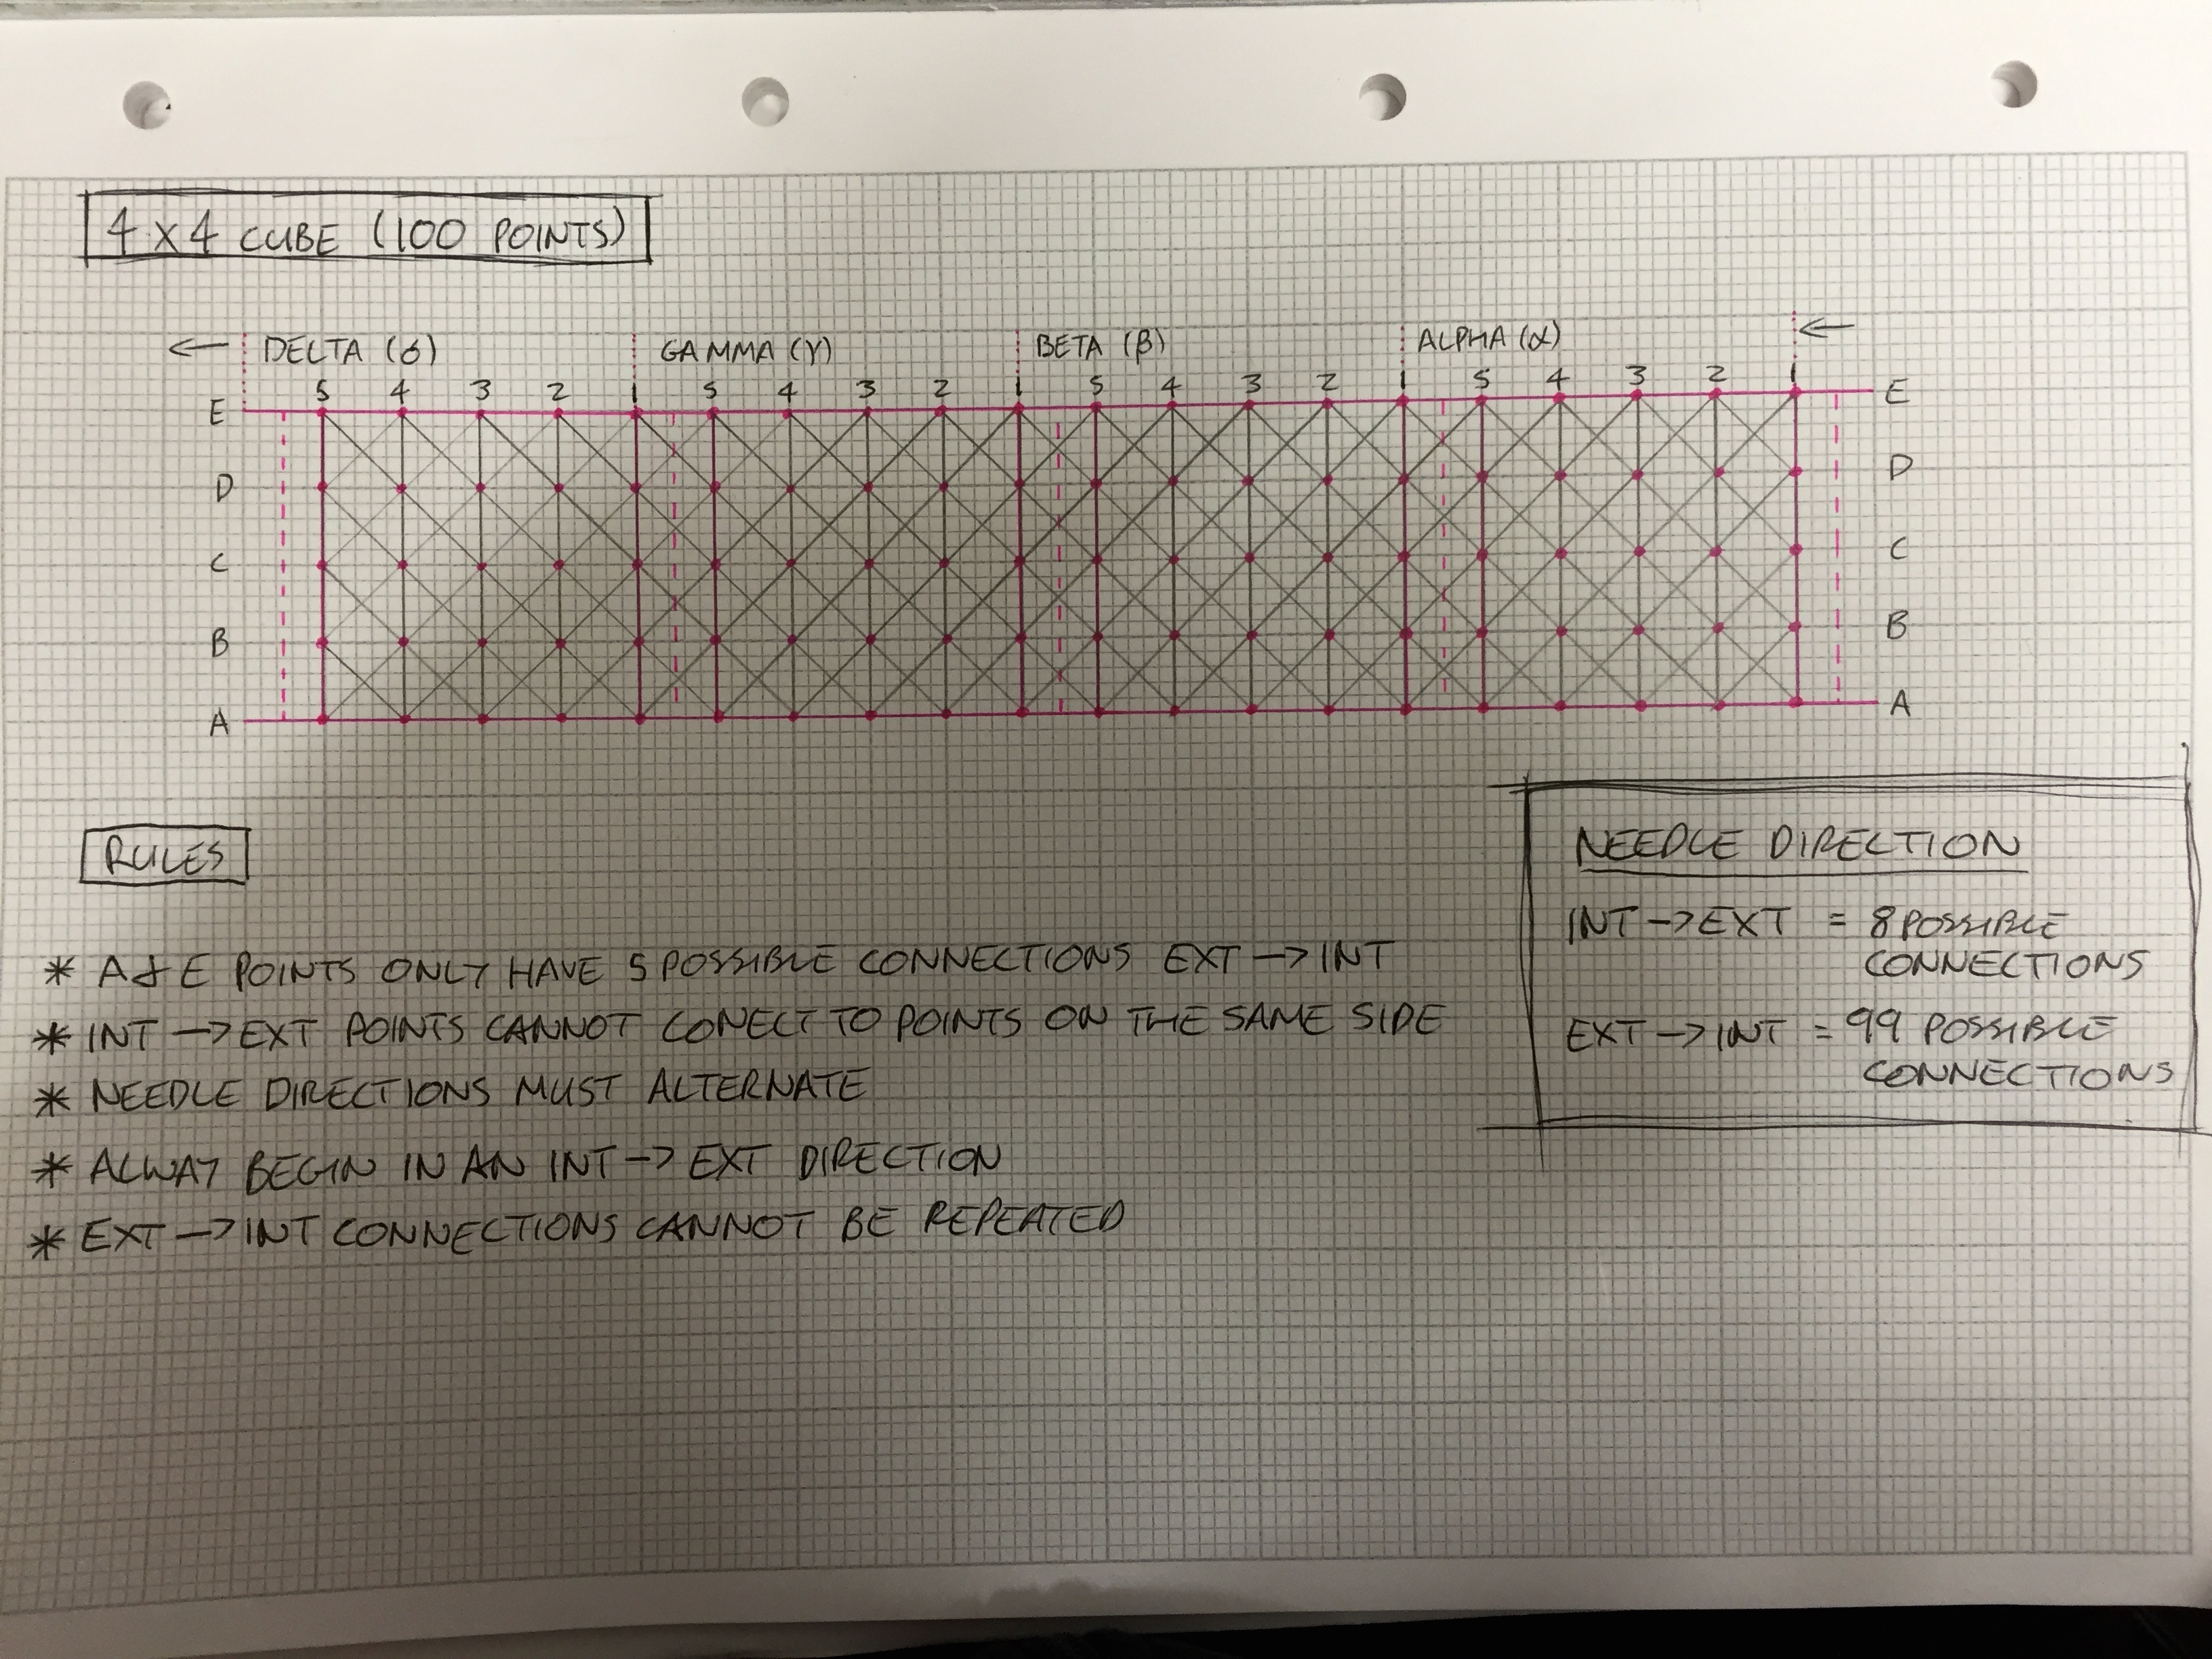 4x4 CUBE (100 POINTS)
← DELTA (δ) GAMMA (γ) BETA (β) ALPHA (α) ←
5 4 3 2 1 5 4 3 2 1 5 4 3 2 1 5 4 3 2 1
E E
D D
C C
B B
A A
RULES
* A & E POINTS ONLY HAVE 5 POSSIBLE CONNECTIONS EXT → INT
* INT → EXT POINTS CANNOT CONECT TO POINTS ON THE SAME SIDE
* NEEDLE DIRECTIONS MUST ALTERNATE
* ALWAY BEGIN IN AN INT → EXT DIRECTION
* EXT → INT CONNECTIONS CANNOT BE REPEATED
NEEDLE DIRECTION
INT → EXT = 8 POSSIBLE
CONNECTIONS
EXT → INT = 99 POSSIBLE
CONNECTIONS